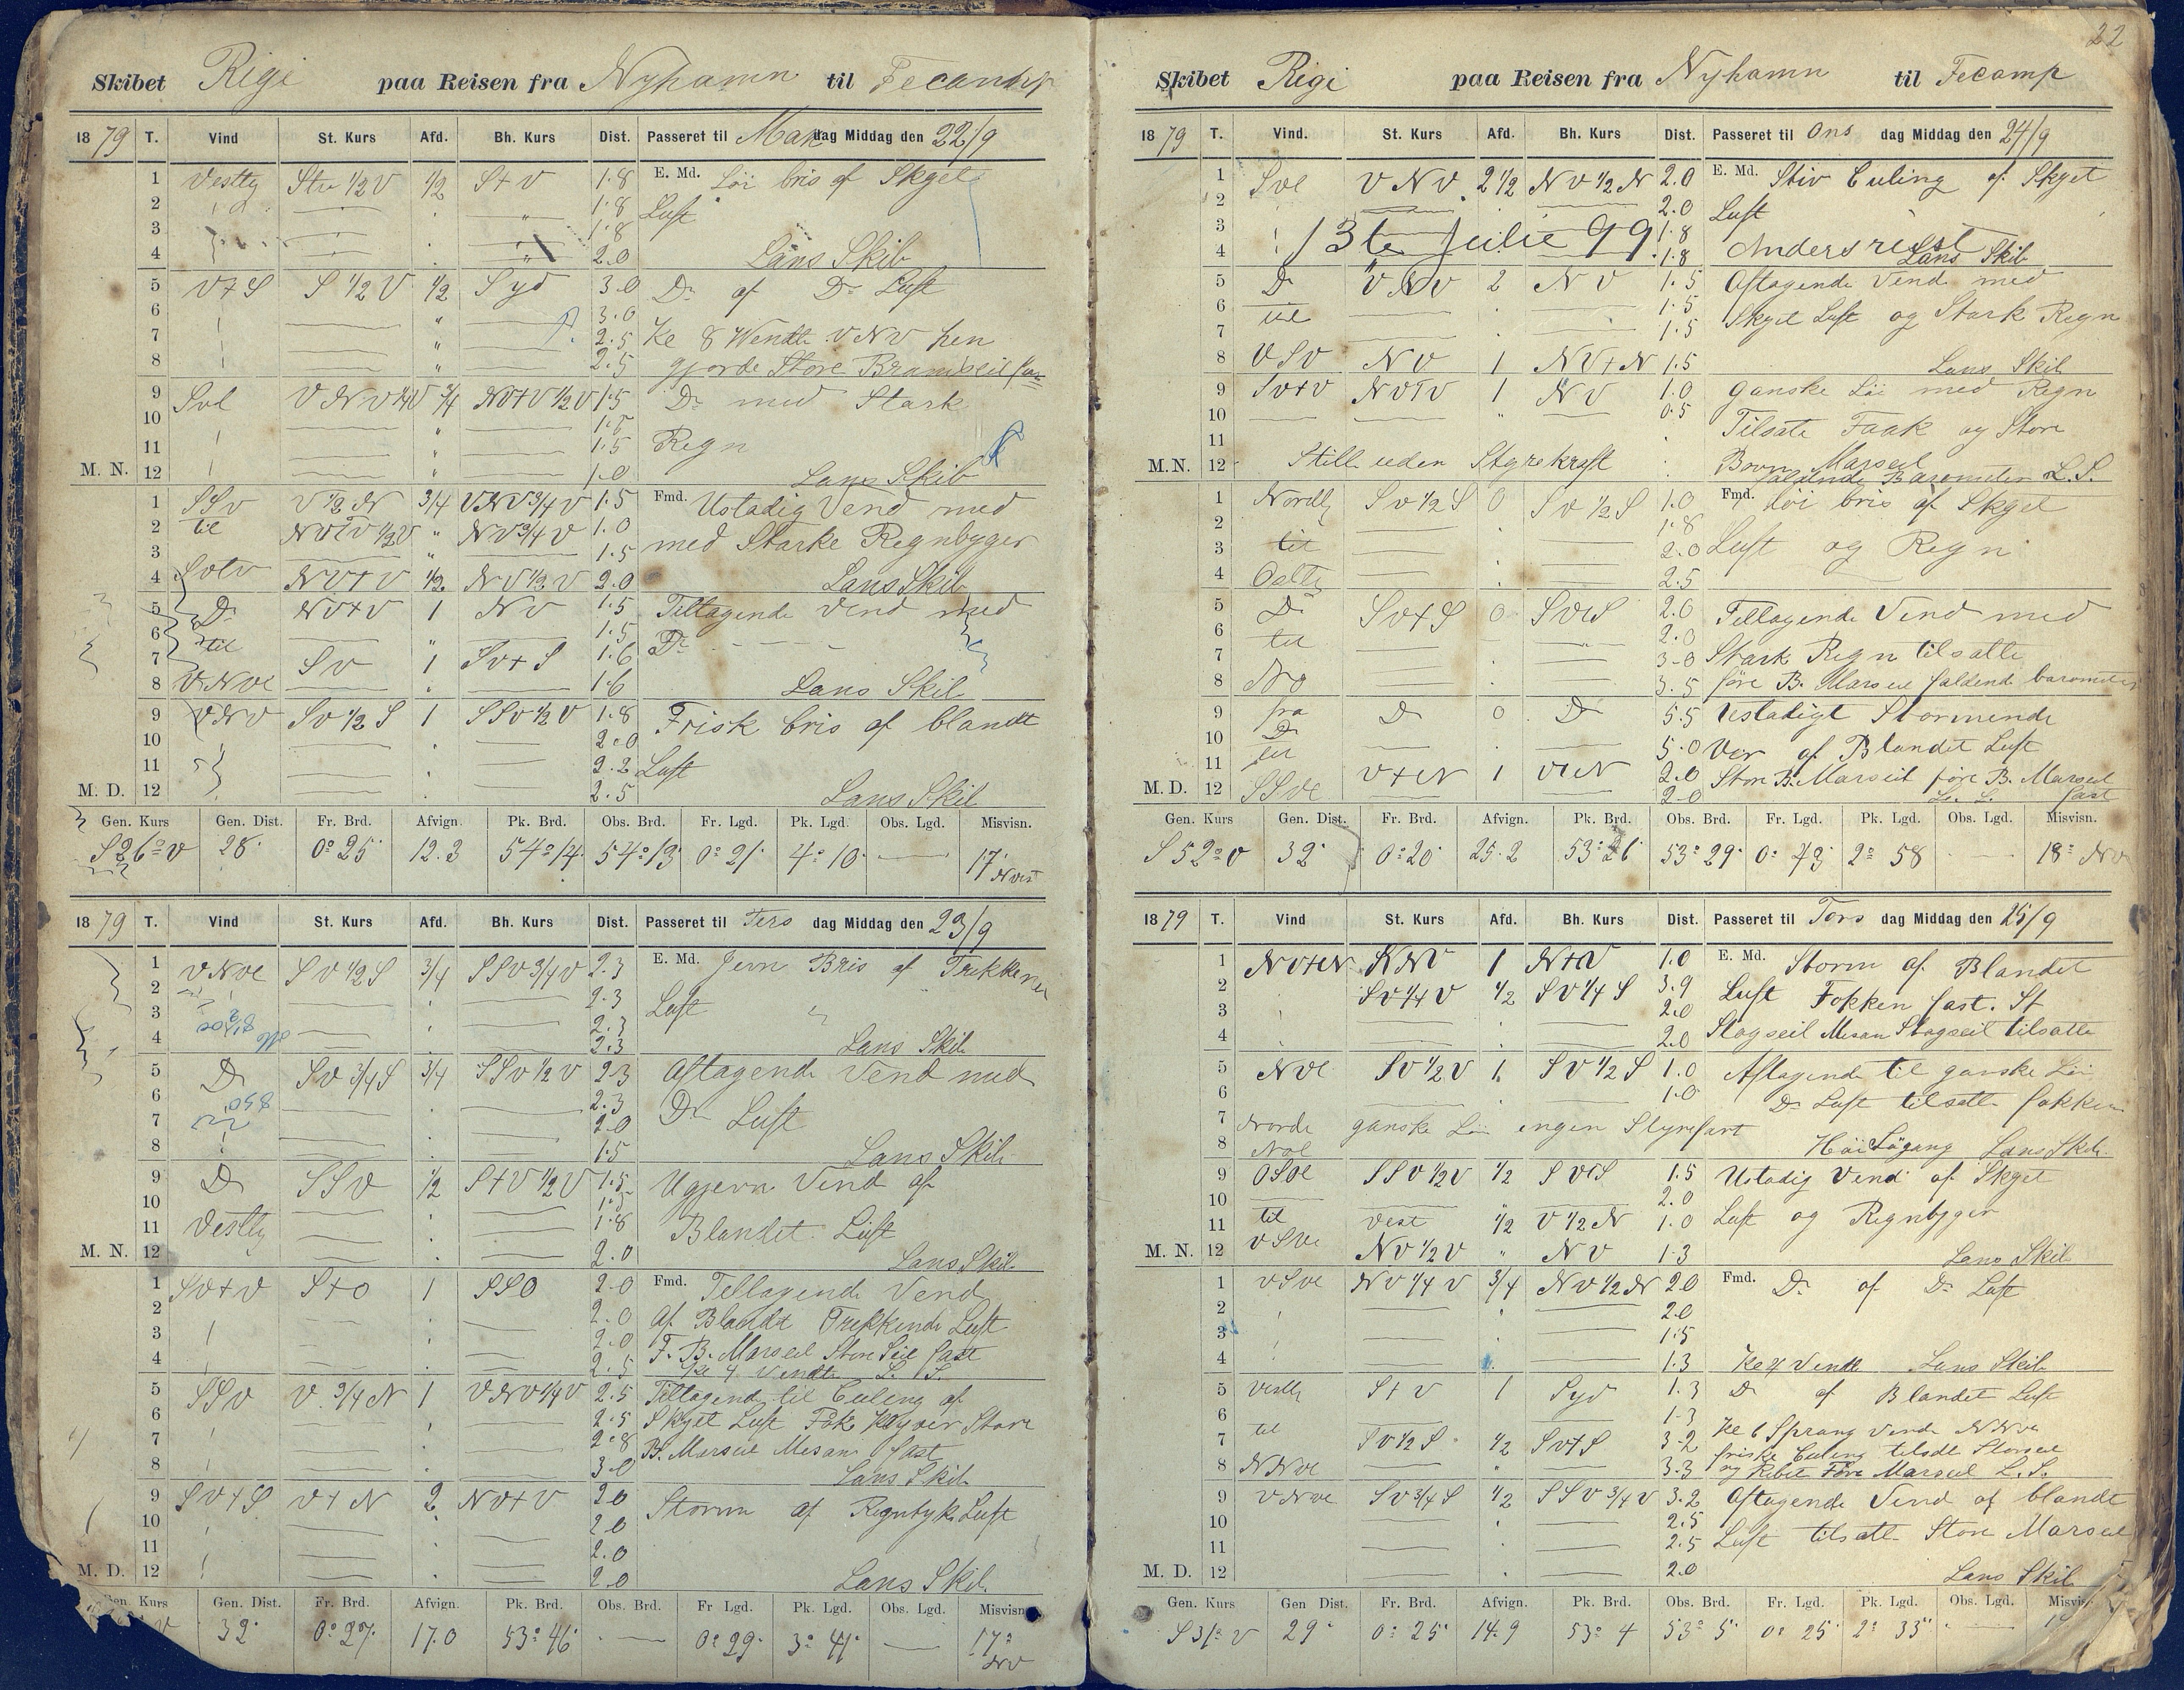 Skibet Rigi paa Reisen fra Nyhamn til Fecamp
1879 T. Vind St. Kurs Afd. Bh. Kurs Dist. Passeret til Mandag Middag den 22/9
1 Vestlig Stv 1/2 V 1/2 S+V 1.8 E. Md. Löi bris af Skyet
2 1.8 Luft
3 1.8
4 2.0 Læns Skib
5 V+S S 1/2 V 1/2 Syd 3.0 Do af Do Luft
6 3.0
7 2.5 Kl 8 Wendte VNV hen
8 2.5 gjorde Store Bramseil fast
9 Svl VNV 1/4 V 3/4 NV+V 1/2 V 1.5 Do med Stark
10 1.5
11 1.5 Regn
M. N. 12 1.0 Lans Skib
1 SSv V 1/2 N 3/4 VNV 3/4 V 1.5 Fmd. Ustadig Vend med
2 til NVTV 1/2 V " NV 3/4 V 1.0
3 " 1.5 med Starke Regnbyger
4 Svtv NV+V 1/2 NV 1/2 V 2.0 Lans Skib
5 Do NV+V 1 NV 1.5 Tiltagende Vend med
6 til " 1.5 Do
7 SV 1 SV+S 1.6
8 VNVl 1.6 Lans Skib
9 VNV SV 1/2 S 1 SSV 1/2 V 1.8 Frisk bris af blandt
10 2.0
11 2.2 Luft
M. D. 12 2.5 Lans Skib
Gen. Kurs Gen. Dist. Fr. Brd. Afvign. Pk. Brd. Obs. Brd. Fr. Lgd. Pk. Lgd. Obs. Lgd. Misvisn.
S 26° V 28' 0° 25' 12.3 54° 14' 54° 13' 0° 21' 4° 10' — 17° Nvst
1879 T. Vind St. Kurs Afd. Bh. Kurs Dist. Passeret til Tersdag Middag den 23/9
1 VNVl SV 1/2 S 3/4 SSV 3/4 V 2.3 E. Md. Jevn Bris af Trekkene
2 2.3 Luft
3 2.3
4 2.3 Lans Skib
5 Do SV 3/4 S 3/4 SSV 1/2 V 2.3 Aftagende Vend med
6 2.3 Do Luft
7 2.0
8 1.5 Lans Skib
9 Do SSV 1/2 S+V 1/2 V 1.5 Ugjevn Vind af
10 1.5
11 Vestlig 1.8 Blandet Luft
M. N. 12 2.0 Lans Skib
1 SV+V S+O 1 SSO 2.0 Fmd. Tellagende Vend
2 2.0 Af Blandt Trekkende Luft
3 2.0 F. B. Marseil Store Seil fast
4 2.5 Kl 4 Vendte L. S.
5 SSV V 3/4 N 1 VNV 1/4 V 2.5 Tiltagende til Culing af
6 2.5 Skyet Luft Fok Klyver Store
7 2.8 B. Marseil Mesan fast
8 3.0 Lans Skib
9 SV+S V+N 2 NV+V 2.0 Storm af Regntyk Luft
10 2.0
11 2.0
M. D. 12 2.0 Lans Skib.
Gen. Kurs Gen. Dist. Fr. Brd. Afvign. Pk. Brd. Obs. Brd. Fr Lgd. Pk. Lgd. Obs. Lgd. Misvisn.
V 32' 0° 27' 17.0 53° 46' — 0° 29' 3° 41' — 17° NV
22
Skibet Rigi paa Reisen fra Nyhamn til Fecamp
1879 T. Vind. St. Kurs Afd. Bh. Kurs Dist. Passeret til Onsdag Middag den 24/9
1 Svl VNV 2 1/2 NV 1/2 N 2.0 E. Md. Stiv Culing af Skyet
2 2.0 Luft
3 13te Julie 99 1.8 Anders
4 1.8 Lans Skib
5 Do VNV 2 NV 1.5 Aftagende Vend med
6 til 1.5 Skyet Luft og Stark Regn
7 1.5
8 VSV NV 1 NV+N 1.5 Lans Skib
9 SV+V NVTV 1 NV 1.0 ganske Löi med Regn
10 0.5 Tilsate Fook og Store
11 Bovn Marseil
M.N. 12 Still uden Styrekraft faldende Barometer L. S.
1 Nordlig SV 1/2 S 0 SV 1/2 S 1.0 Fmd. Löi bris af Skyet
2 1.8
3 til 2.0 Luft og Regn
4 Ostlig 2.5
5 Do SV+S 0 SVtS 2.0 Tellagende Vend med
6 til 2.0
7 3.0 Stark Regn tilsatte
8 No 3.5 före B. Marseil faldend barometer
9 fra Do 0 Do 5.5 Ustadigt Stormende
10 Do 5.0 Ver af Blandet Luft
11 til V+N 1 VtN 2.0 Store B. Marseil före B. Marseil
M. D. 12 SSVl 2.0 L. S. fast
Gen. Kurs Gen. Dist. Fr. Brd. Afvign. Pk. Brd. Obs. Brd. Fr. Lgd. Pk. Lgd. Obs. Lgd. Misvisn.
S 52° V 32' 0° 20' 25.2 53° 26' 53° 29' 0° 43' 2° 58 — 18° NV
1879 T. Vind St. Kurs Afd. Bh. Kurs Dist. Passeret til Torsdag Middag den 25/9
1 NV+N KNV 1 N+V 1.0 E. Md. Storm af Blandet
2 SV 1/4 V 1/2 SV 1/4 S 3.9 Luft Fokken fast. St
3 2.0
4 2.0 Stagseil Mesan Stagseil tilsatte
5 NVl SV 1/2 V 1 SV 1/2 S 1.0 Aftagende til ganske Löi
6 1.0 Do Luft tilsatte fokken
7 Norde ganske Löi engen Styrefart
8 Nol Höi Sögang Lans Skib.
9 OSOl SSV 1/2 V 1/2 SVtS 1.5 Ustadig Vend af Skyet
10 2.0
11 til Vest 1/2 V 1/2 N 1.0 Luft og Regnbyger
M. N. 12 VSVl NV 1/2 V " NV 1.3 Lans Skib
1 VSVl NV 1/4 V 3/4 NV 1/2 N 2.0 Fmd. Do af Do Luft
2 2.0
3 1.5
4 1.3 Kl 4 Vendte Lans Skib
5 Vestlig S+V 1 Syd 1.3 Do af Blandet Luft
6 til 1.3 Kl 6 Sprang Vende NNVe
7 SV 1/2 S 1/2 SV+S 3.2 friske Culing tilsatte Storseil
8 NNVl " 3.3 og Rebet Före Marseil L. S.
9 VNVl SV 3/4 S 1/2 SSV 3/4 V 3.2 Aftagende Vend af blandt
10 2.5
11 2.5 Luft tilsatte Store Marseil
M. D. 12 2.0 Lans Skib
Gen. Kurs Gen Dist. Fr. Brd. Afvign. Pk. Brd. Obs. Brd. Fr. Lgd. Pk. Lgd. Obs. Lgd. Misvis
S 31° V 29' 0° 25' 14.9 53° 4 53° 5' 0° 25' 2° 33' —